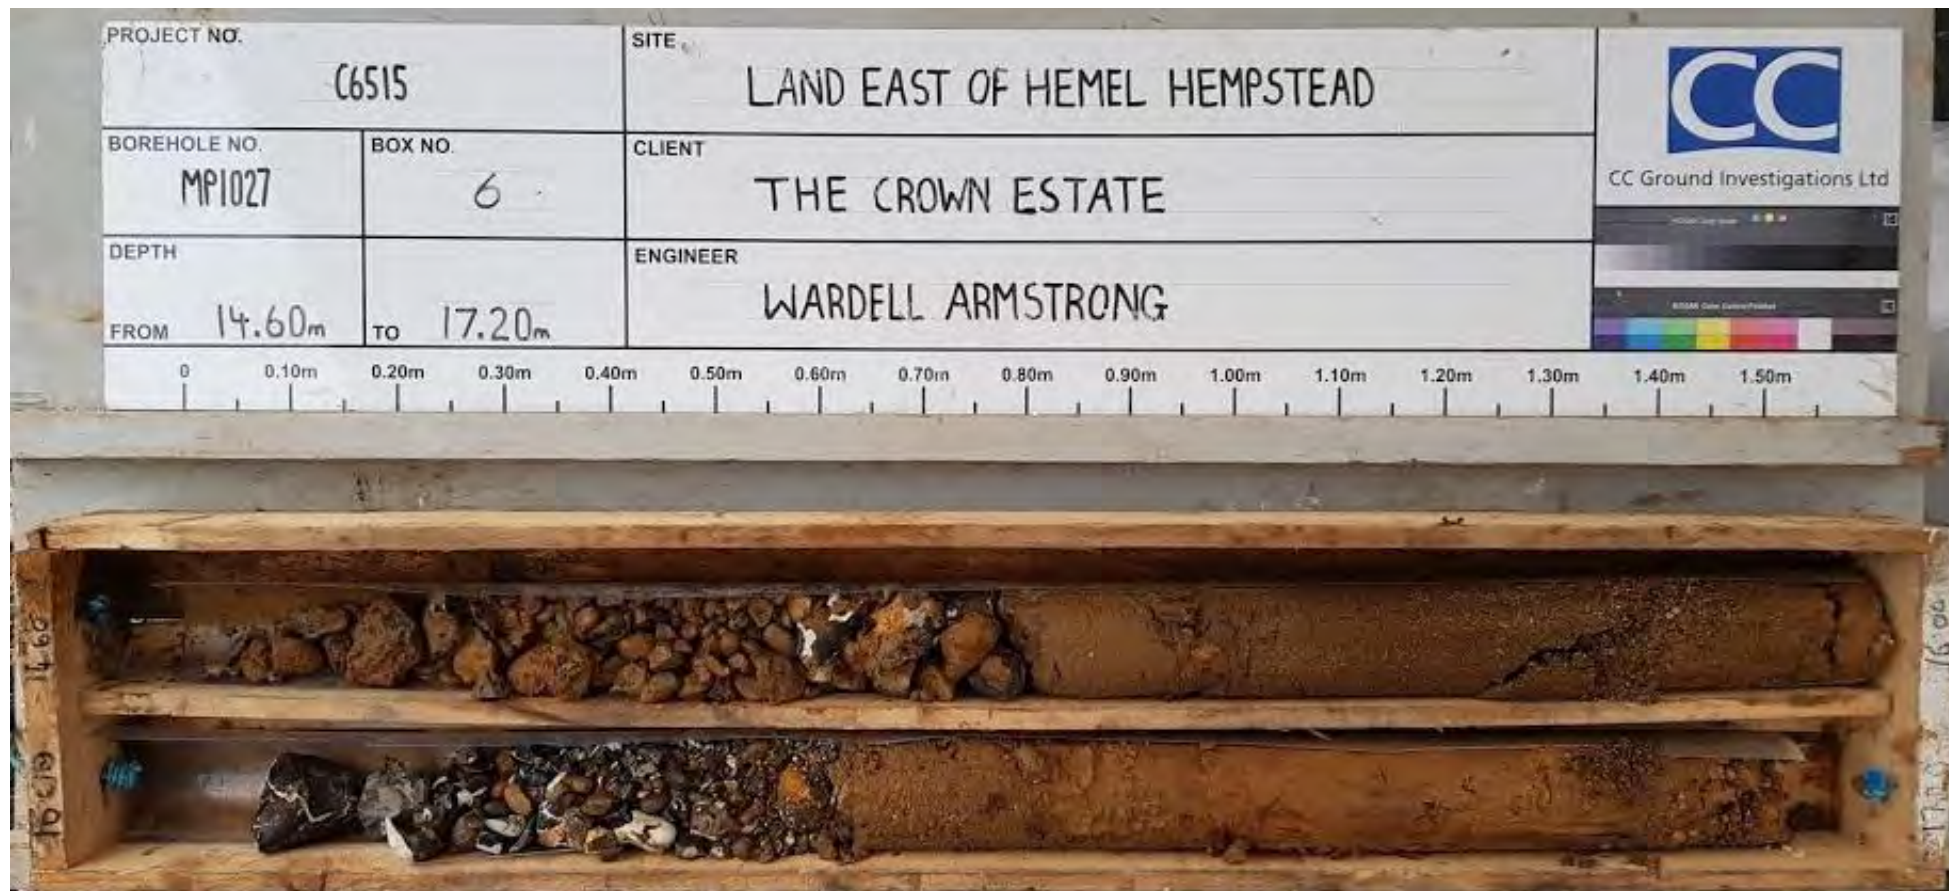 PROJECT NO.
C6515
SITE
LAND EAST OF HEMEL HEMPSTEAD
CC
CC Ground Investigations Ltd
BOREHOLE NO.
MP1027
BOX NO.
6
CLIENT
THE CROWN ESTATE
DEPTH
FROM 14.60m TO 17.20m
ENGINEER
WARDELL ARMSTRONG
0 0.10m 0.20m 0.30m 0.40m 0.50m 0.60m 0.70m 0.80m 0.90m 1.00m 1.10m 1.20m 1.30m 1.40m 1.50m
14.60
16.00
16.00